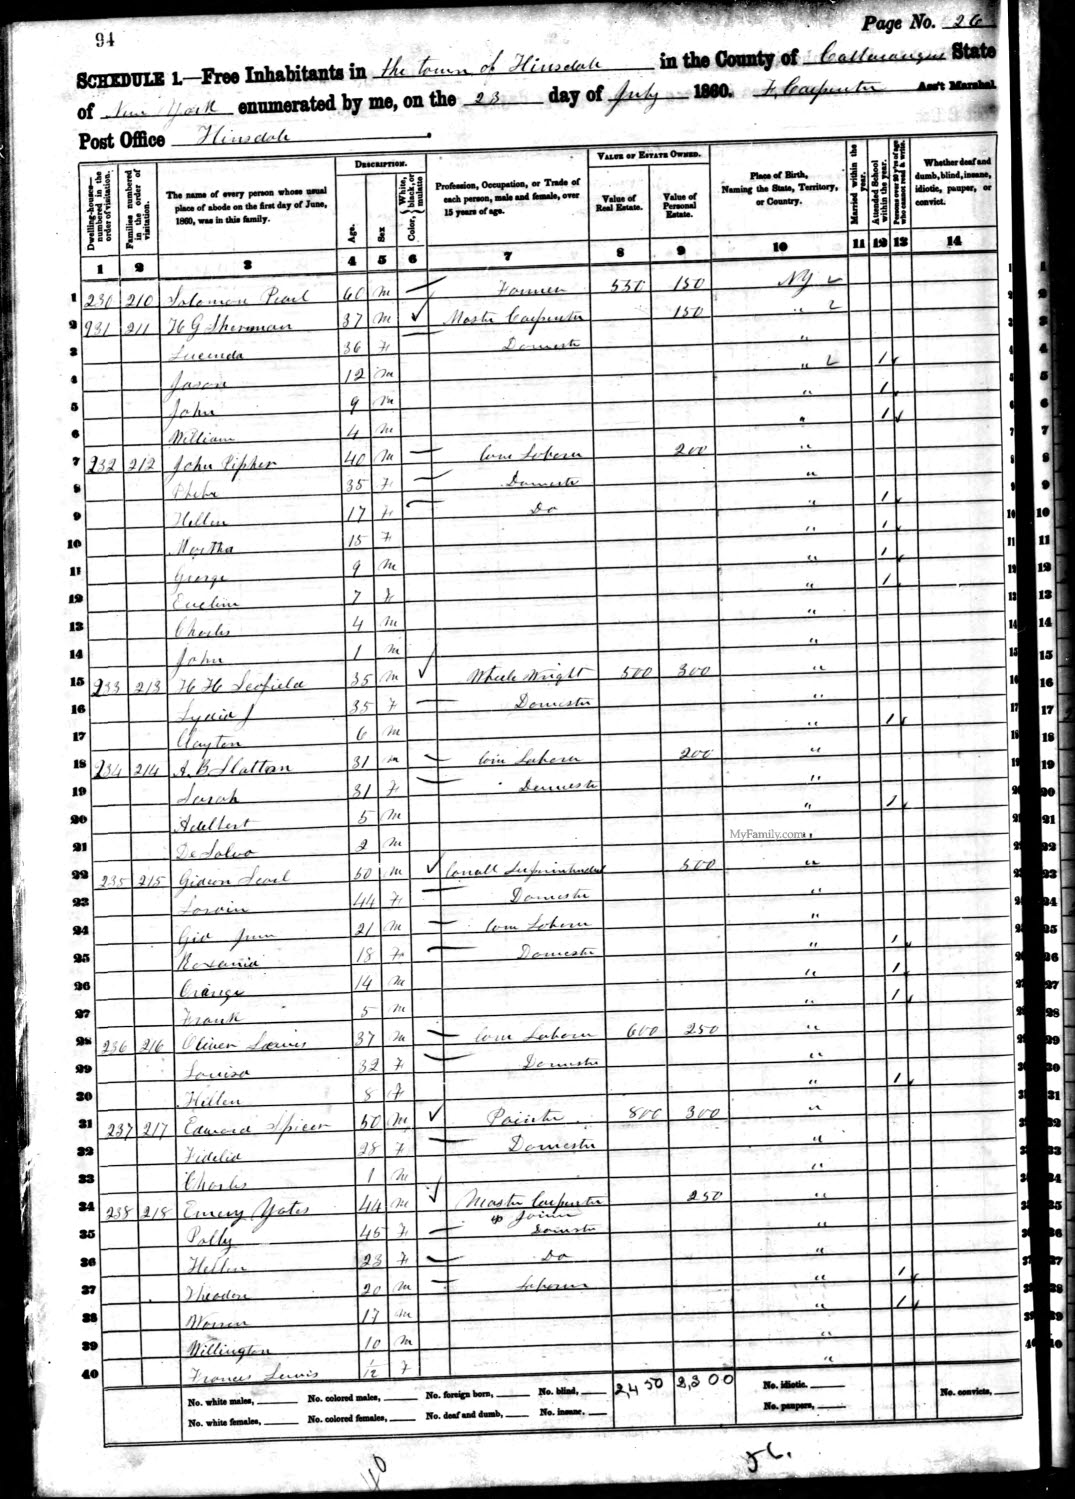 94
Page No. 26
SCHEDULE 1.—Free Inhabitants in the town of Hinsdale in the County of Cattaraugus State
of New York enumerated by me, on the 23 day of July 1860. F. Carpenter Ass't Marshal
Post Office Hinsdale.
Dwelling-houses—numbered in the order of visitation.
Families numbered in the order of visitation.
The name of every person whose usual place of abode on the first day of June, 1860, was in this family.
DESCRIPTION.
Age.
Sex
Color, White, black, or mulatto
Profession, Occupation, or Trade of each person, male and female, over 15 years of age.
VALUE OF ESTATE OWNED.
Value of Real Estate.
Value of Personal Estate.
Place of Birth, Naming the State, Territory, or Country.
Married within the year.
Attended School within the year.
Persons over 20 y'rs of age who cannot read & write.
Whether deaf and dumb, blind, insane, idiotic, pauper, or convict.
1 2 3 4 5 6 7 8 9 10 11 12 13 14
1 230 210 Solomon Pearl 60 m Farmer 550 150 NY
2 231 211 H G Sherman 37 m Master Carpenter 150 "
3 Lucinda 36 F Domestic "
4 Jason 12 m " 1
5 John 9 m " 1
6 William 4 m " 1
7 232 212 John 40 m Com Laborer 200 "
8 Phebe 35 F Domestic "
9 Hellen 17 F Do " 1
10 Martha 15 F " 1
11 George 9 m " 1
12 Eveline 7 F " 1
13 Charles 4 m "
14 John 1 m "
15 233 213 H H Scofield 35 m Wheele Wright 500 300 "
16 Lydia J 35 F Domestic "
17 Clayton 6 m " 1
18 234 214 A. B Slattom 31 m Com Laborer 200 "
19 Sarah 31 F Domestic "
20 Adelbert 5 m " 1
21 De Salvo 2 m "
MyFamily.com
22 235 215 Gideon Searl 50 m Canall Superintendent 500 "
23 44 F Domestic "
24 Gid Junr 21 m Com Laborer "
25 Roxania 18 F Domestic " 1
26 Orange 14 m " 1
27 Frank 5 m " 1
28 236 216 Oliver Lewis 37 m Com Laborer 600 250 "
29 Louisa 32 F Domestic "
30 Hellen 8 F " 1
31 237 217 Edward Spicer 50 m Painter 800 300 "
32 Fidelia 28 F Domestic "
33 Charles 1 m "
34 238 218 Emery Yates 44 m Master Carpenter 250 "
& Joiner
35 Polly 45 F Domestic "
36 Hellen 23 F Do "
37 Theodore 20 m Laborer " 1
38 Warren 17 m " 1
39 Willington 10 m "
40 Frances Lewis 1/2 F "
No. white males, No. colored males, No. foreign born, No. blind, 2,450 2,300 No. idiotic. No. convicts,
No. white females, No. colored females, No. deaf and dumb, No. insane, No. paupers,
40
56.